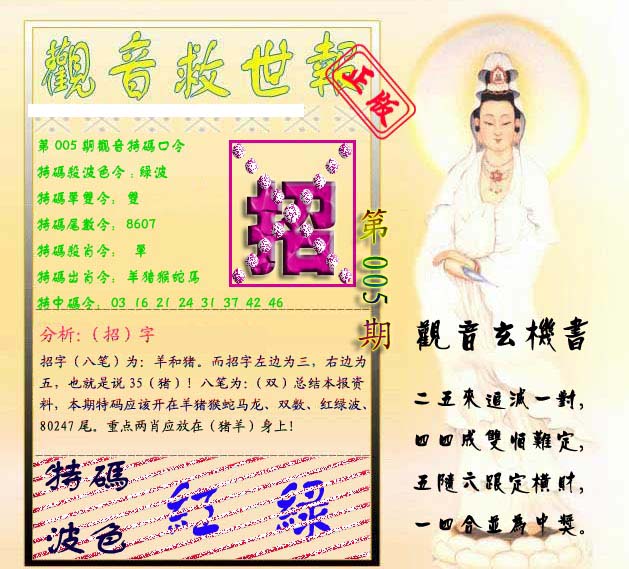 觀音救世報
正版
第005期觀音特碼口令
特碼殺波色令:綠波
特碼單雙令: 雙
特碼尾數令: 8607
特碼殺肖令: 單
特碼出肖令: 羊猪猴蛇馬
特中碼令: 03 16 21 24 31 37 42 46
招
第005期
分析:（招）字
招字（八笔）为: 羊和猪。而招字左边为三，右边为
五，也就是说35（猪）！八笔为:（双）总结本报资
料，本期特码应该开在羊猪猴蛇马龙、双数、红绿波、
80247尾。重点两肖应放在（猪羊）身上！
特碼
波色
紅 綠
觀音玄機書
二五來追減一對，
四四成雙恒難定，
五隨六跟定横財，
一四合並為中獎。